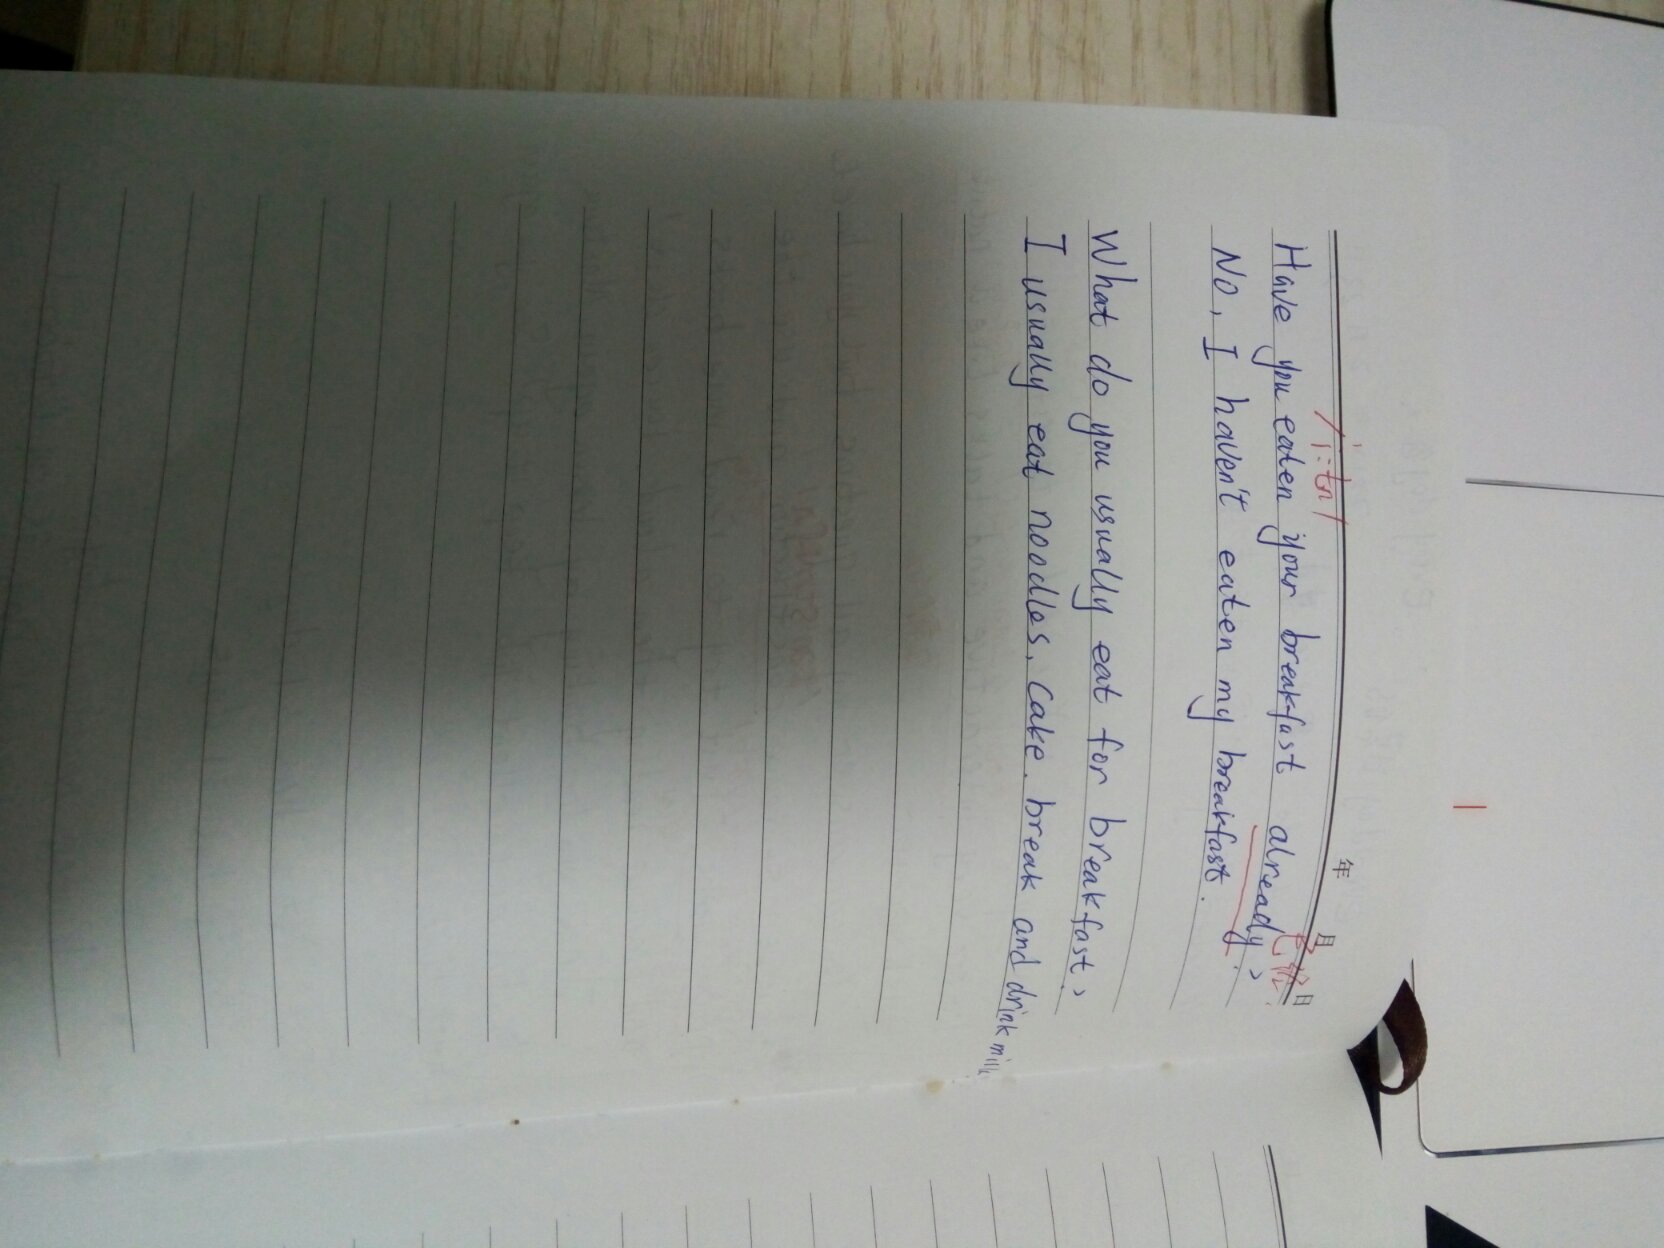 年 月 日
/i:tn/ 已经
Have you eaten your breakfast already?
No, I haven't eaten my breakfast.
What do you usually eat for breakfast?
I usually eat noodles, cake, break and drink milk